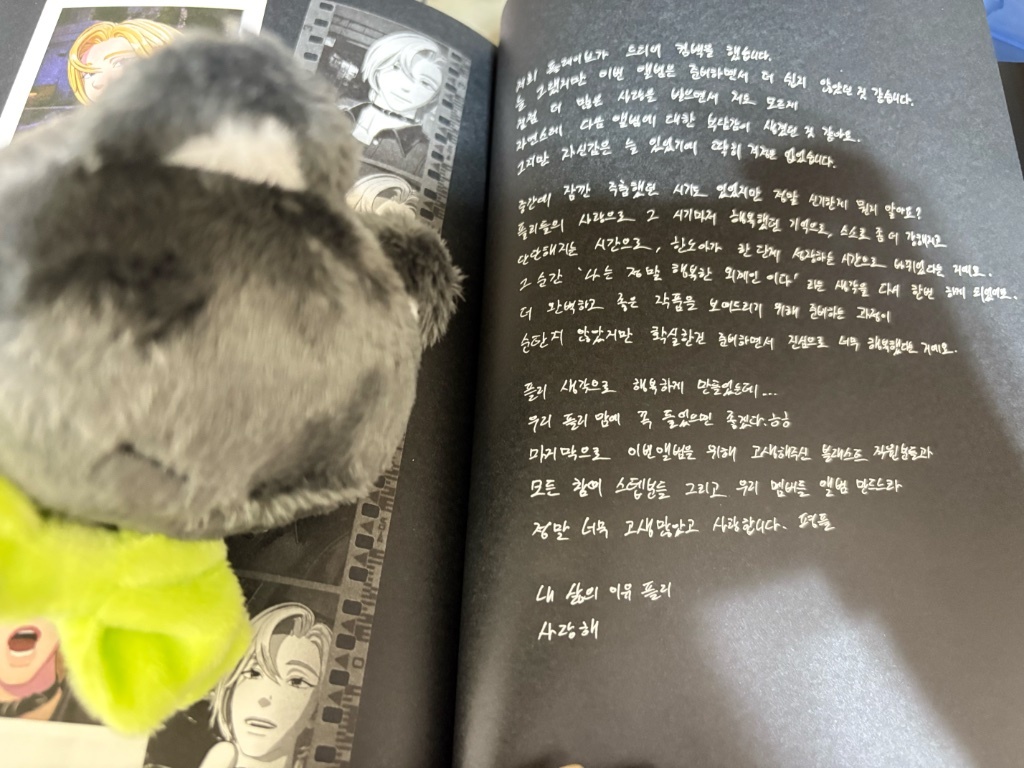 저희 플레이브가 드디어 컴백을 했습니다.
늘 그랬지만 이번 앨범은 준비하면서 더 쉽지 않았던 것 같습니다.
점점 더 많은 사랑을 받으면서 저도 모르게
자연스레 다음 앨범에 대한 부담감이 생겼던 것 같아요.
그치만 자신감은 늘 있었기에 딱히 걱정은 없었습니다.
중간에 잠깐 주춤했던 시기도 있었지만 정말 신기한게 뭔지 알아요?
플리들의 사랑으로 그 시기마저 행복했던 기억으로, 스스로 좀 더 강해지고
단단해지는 시간으로, 한노아가 한 단계 성장하는 시간으로 바뀌었다는 거예요.
그 순간 '나는 정말 행복한 외계인 이다' 라는 생각을 다시 한번 하게 되었어요.
더 완벽하고 좋은 작품을 보여드리기 위해 준비하는 과정이
순탄치 않았지만 확실한건 준비하면서 진심으로 너무 행복했다는 거예요.
플리 생각으로 행복하게 만들었는데...
우리 플리 맘에 꼭 들었으면 좋겠다.ㅎㅎ
마지막으로 이번앨범을 위해 고생해주신 블래스트 직원분들과
모든 참여 스텝분들 그리고 우리 멤버들 앨범 만드느라
정말 너무 고생많았고 사랑합니다.
내 삶의 이유 플리
사랑해